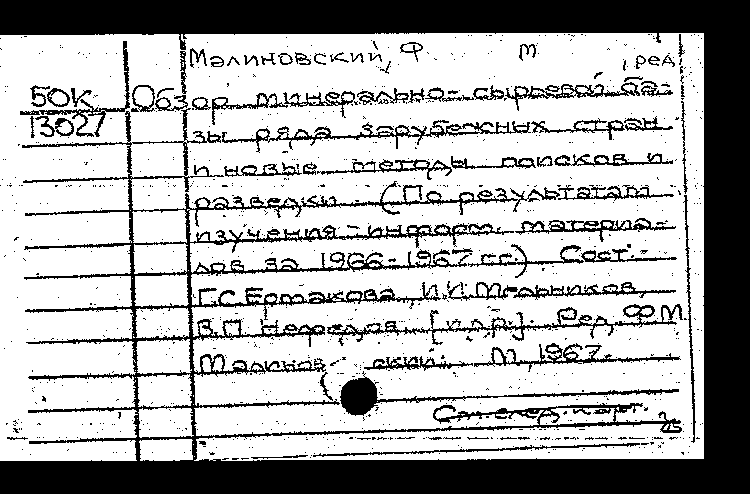 Малиновский, Ф М , ред
50К Обзор минерально-сырьевой ба-
13027 зы ряда зарубежных стран
и новые методы поисков и
разведки. (По результатам
изучения информ. материа-
лов за 1966-1967 гг.) Сост.:
Г.С. Ермакова, И.И. Мельников,
В.П. [и др.]. Ред. Ф.М.
Малиновский. М, 1967.
См. след. карт.